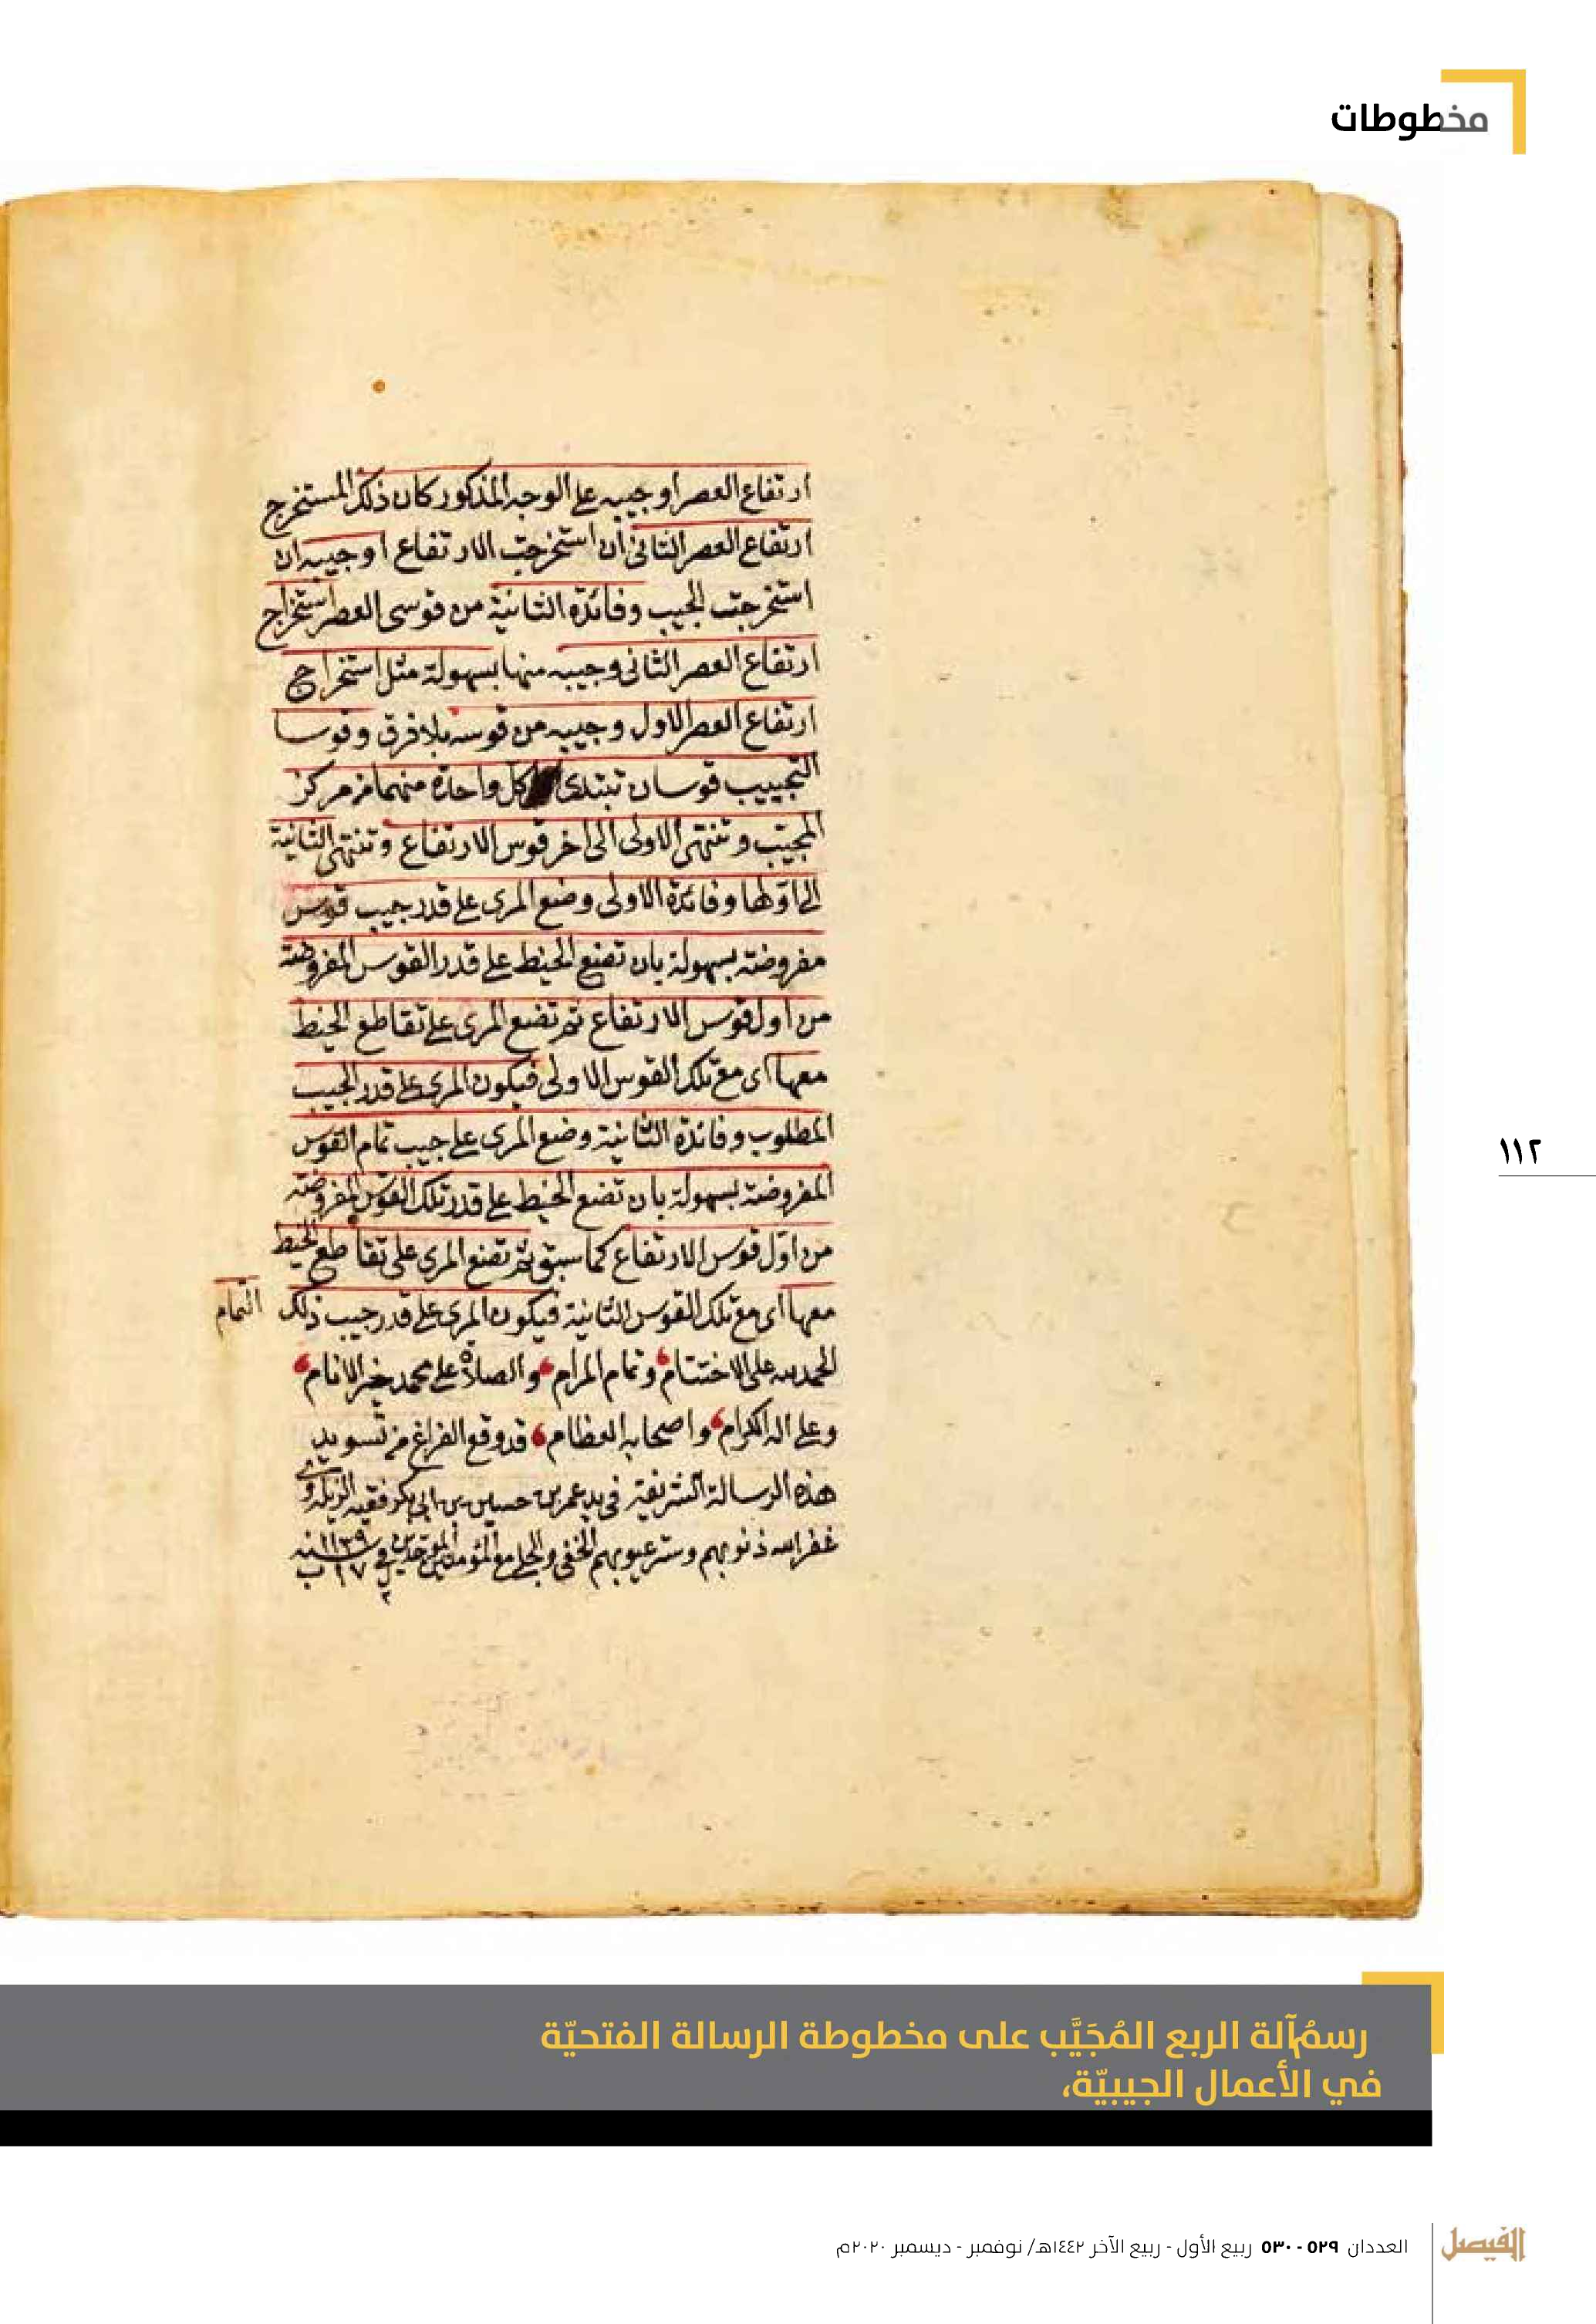 مخطوطات
ارتفاع العصر او جيبه على الوجه المذكور كان ذلك المستخرج
ارتفاع العصر الثانى ان استخرجت الارتفاع او جيبه ان
استخرجت الجيب وفائدة الثانية من قوسى العصر استخراج
ارتفاع العصر الثانى وجيبه منها بسهولة مثل استخراج
ارتفاع العصر الاول وجيبه من قوسه بلا فرق وقوسا
التجييب قوسان تبتدى كل واحدة منهما من مركز
المجيب وتنتهى الاولى الى اخر قوس الارتفاع وتنتهى الثانية
الى اولها وفائدة الاولى وضع المرى على قدر جيب قوس
مفروضة بسهولة بان تضع الخيط على قدر القوس المفروضة
من اول قوس الارتفاع ثم تضع المرى على تقاطع الخيط
معها اى مع تلك القوس الاولى فيكون المرى على قدر الجيب
المطلوب وفائدة الثانية وضع المرى على جيب تمام القوس
المفروضة بسهولة بان تضع الخيط على قدر تلك القوس المفروضة
من اوّل قوس الارتفاع كما سبق ثم تضع المرى على تقاطع الخيط
معها اى مع تلك القوس الثانية فيكون المرى على قدر جيب ذلك التمام
الحمد لله على الاختتام وتمام المرام والصلاة على محمد خير الانام
وعلى اله الكرام واصحابه العظام قد وقع الفراغ من تسويد
هذه الرسالة الشريفة فى يد عمر بن حسين بن ابى بكر فقيه
غفر الله ذنوبهم وستر عيوبهم الخفى والجلى مع المؤمنين الموحدين فى سنه ١١٣٩
١١٢
رسمُ آلة الربع المُجَيَّب على مخطوطة الرسالة الفتحيّة
في الأعمال الجيبيّة،
الفيصل
العددان ٥٢٩ - ٥٣٠ ربيع الأول - ربيع الآخر ١٤٤٢هـ/ نوفمبر - ديسمبر ٢٠٢٠م